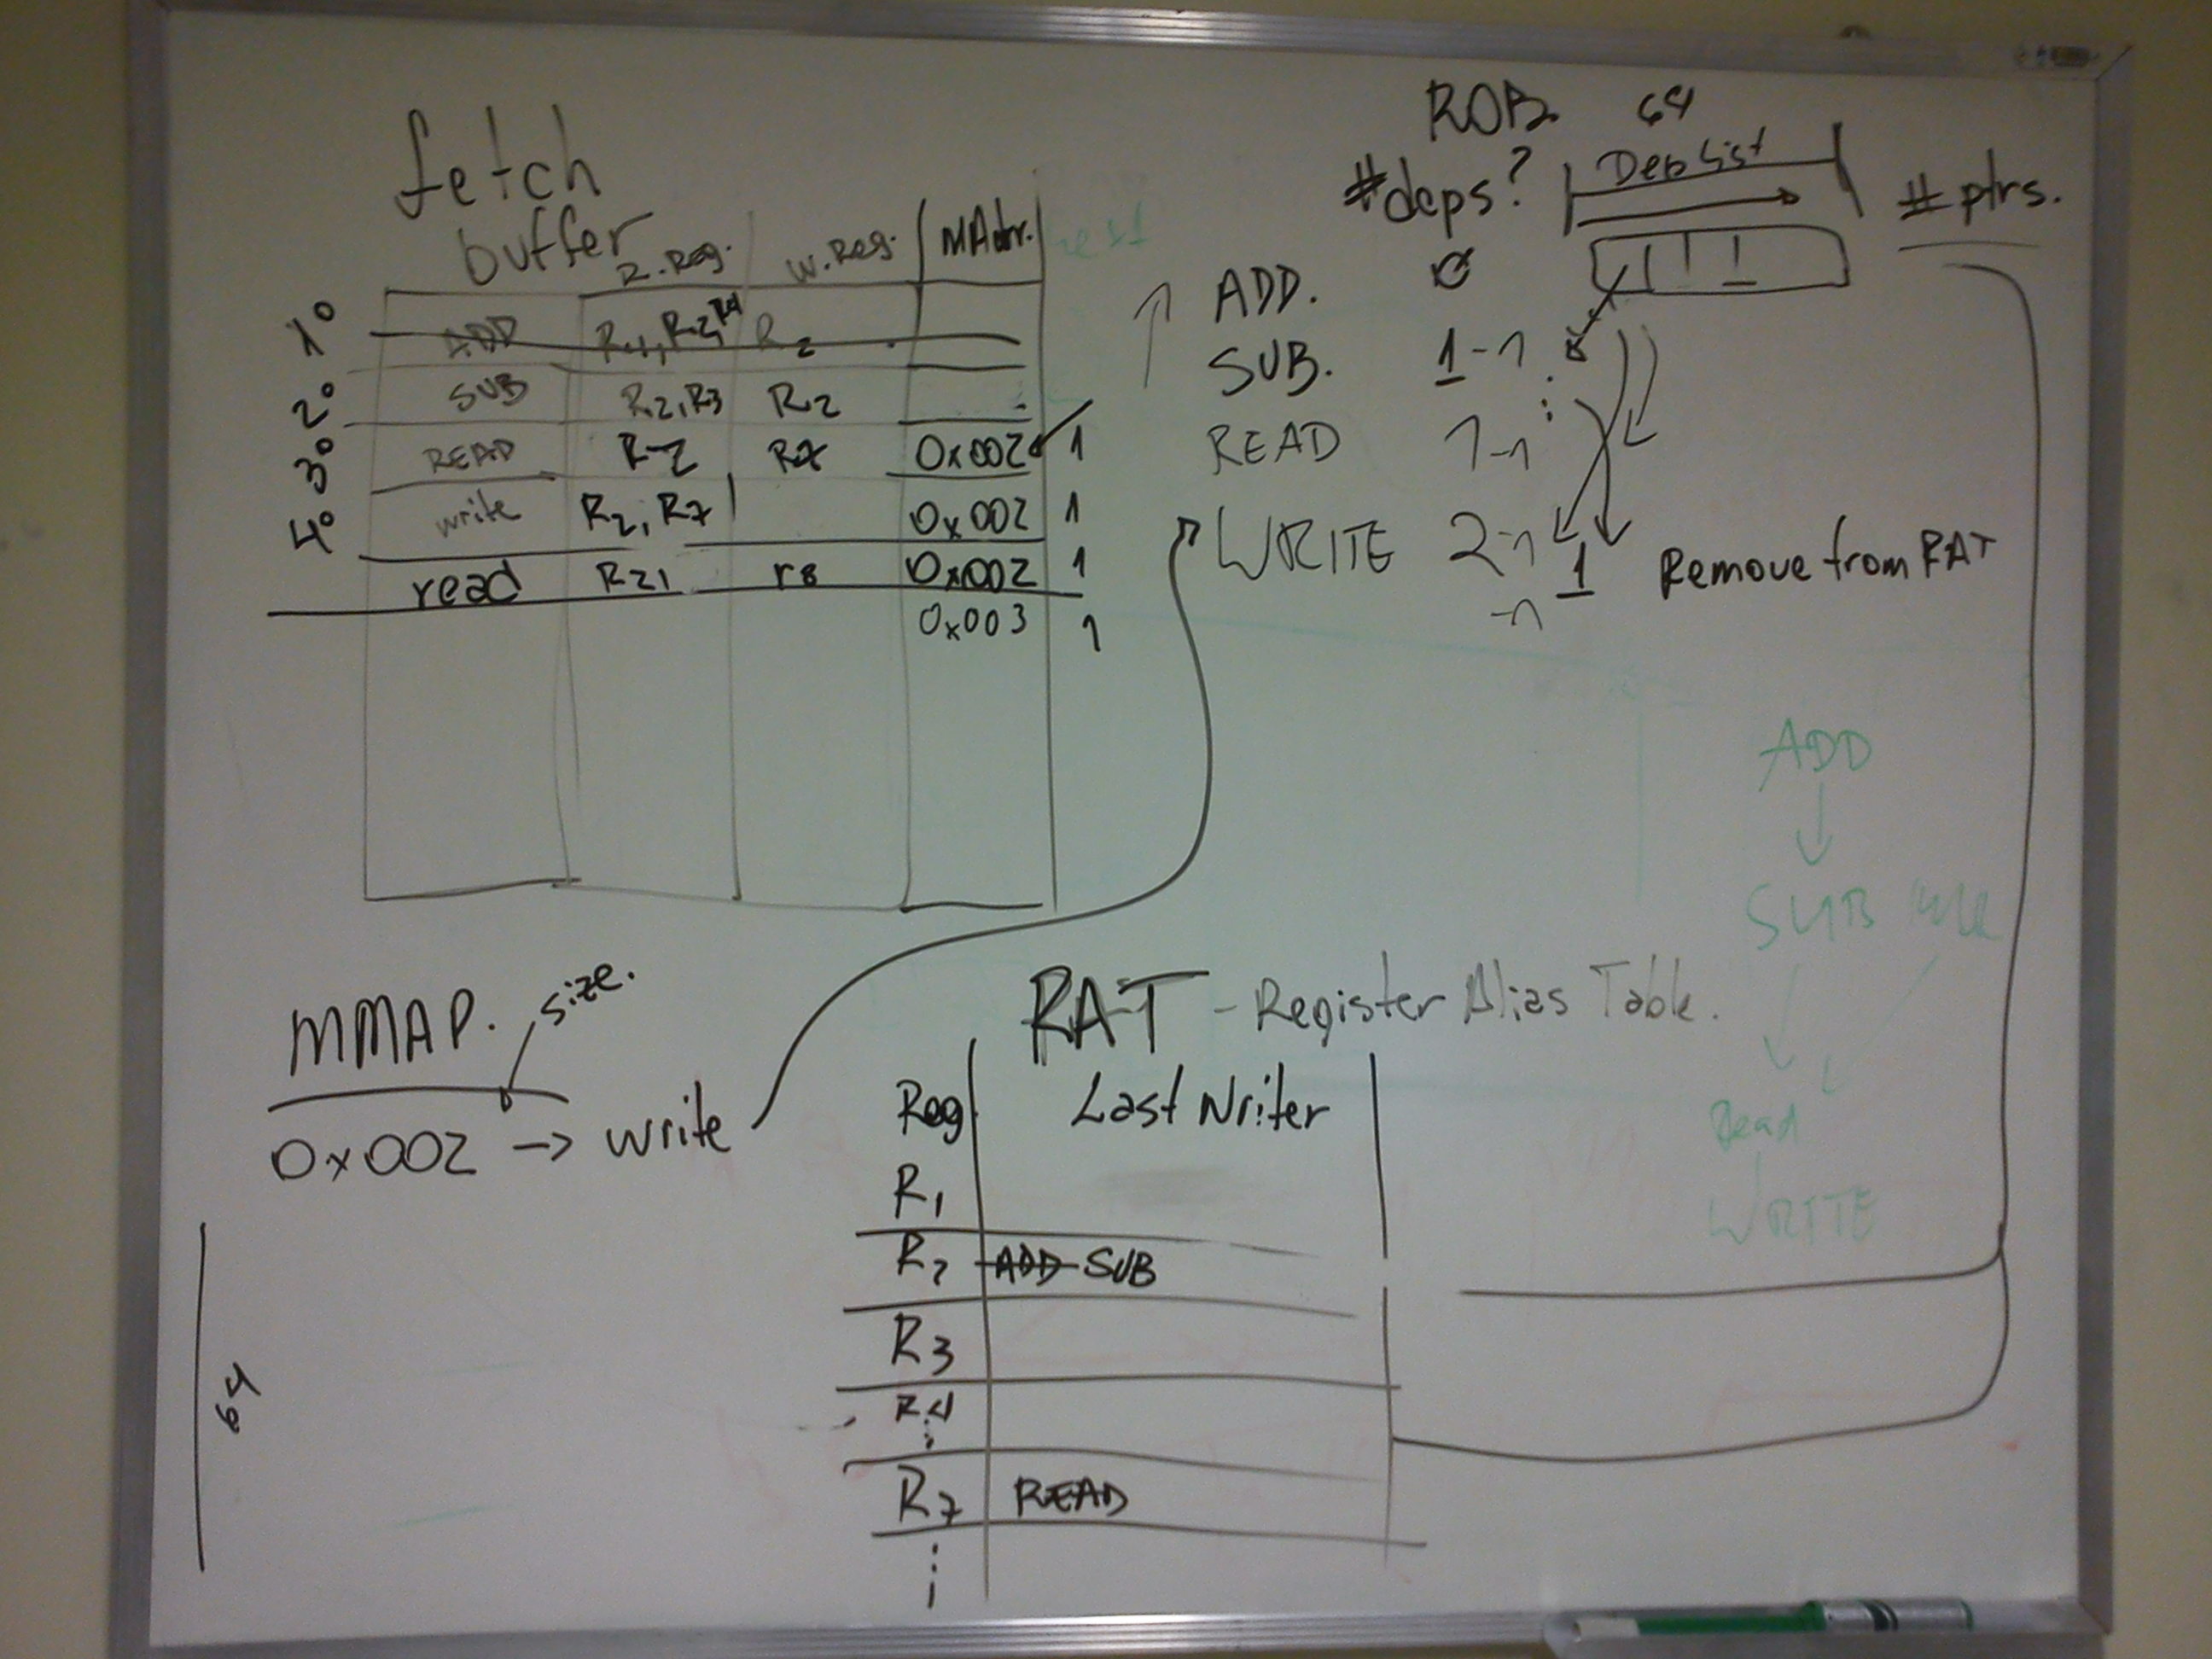 fetch
buffer
R.Reg. W.Reg. MAdr.
1º ADD R1, R2, R4 R2
2º SUB R2, R3 R2
3º READ R2 R7 0x002 1
4º write R2, R7 0x002 1
read R21 r8 0x002 1
0x003 1
ROB 64
#deps? Dep List # ptrs.
ADD. 0
SUB. 1-n
READ 1-n
WRITE 2-n 1 Remove from RAT
-n
ADD
SUB
Read
WRITE
MMAP. size.
0x002 -> write
64
RAT - Register Alias Table.
Reg Last Writer
R1
R2 ADD SUB
R3
R4
R7 READ